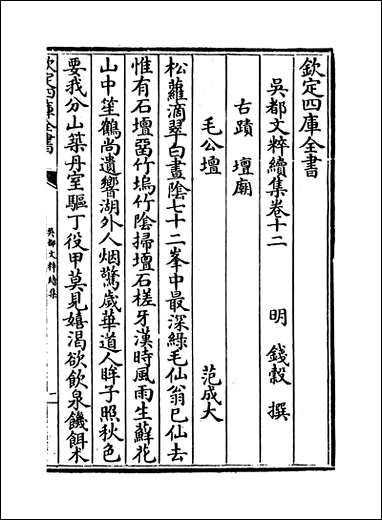 欽定四庫全書
吳都文粹續集卷十二
明 錢穀 撰
古蹟 壇廟
毛公壇
范成大
松蘿滴翠白晝陰七十二峯中最深綠毛仙翁已仙去
惟有石壇留竹塢竹陰掃壇石槎牙漢時風雨生蘚花
山中笙鶴尚遺響湖外人烟驚歲華道人眸子照秋色
要我分山築丹室驅丁役甲莫見嬉渴欲飲泉饑餌术
欽定四庫全書
吳都文粹續集
一